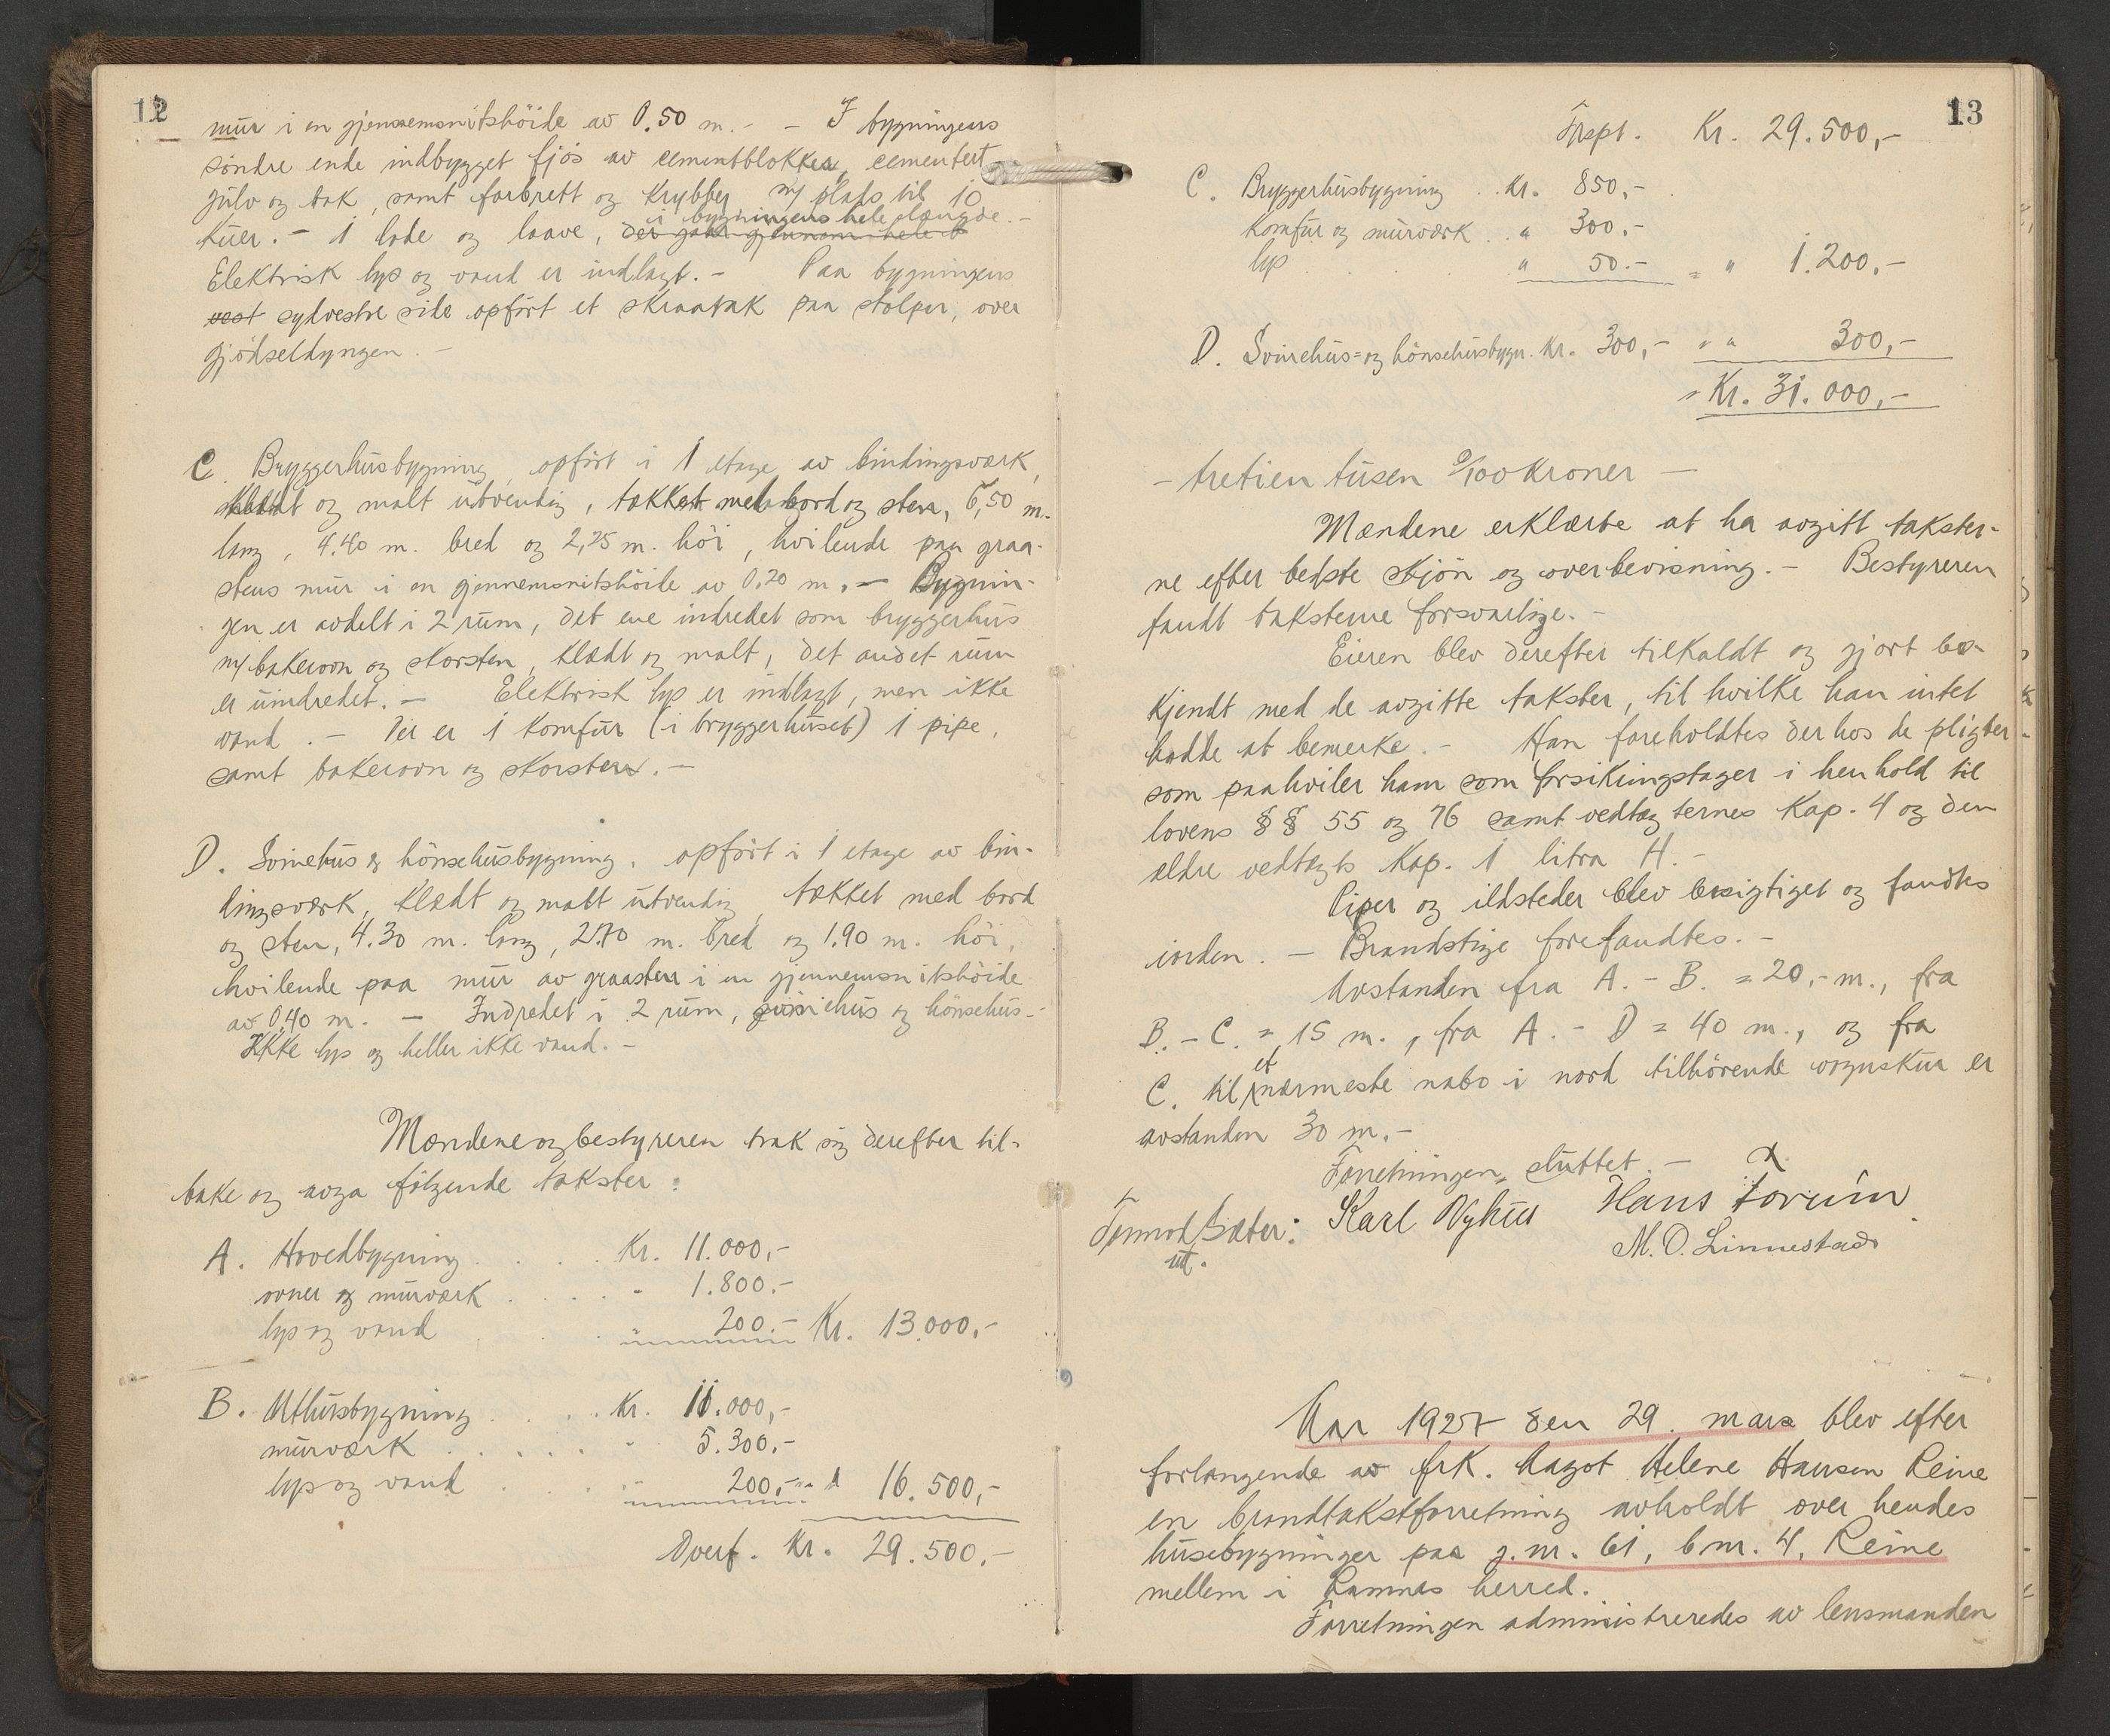 12
mur i en gjennemsnitshöide av 0.50 m. - - I bygningens
söndre ende indbygget fjös av cementblokker, cementert
gulv og tak, samt forbrett og krybber m/ plads til 10
i bygningens hele længde. -
kuer. - 1 lade og laave, der gaar gjennom hele b
Elektrisk lys og vand er indlagt. - Paa bygningens
vest sydvestre side opfört et skraatak paa stolper, over
gjödseldyngen. -
C. Bryggerhusbygning, opfört i 1 etage av bindingsværk,
klædt og malt utvendig, tækket med bord og sten, 6,50 m.
lang, 4.40 m. bred og 2,25 m. höi, hvilende paa graa-
stens mur i en gjennemsnitshöide av 0.20 m. - Bygnin-
gen er avdelt i 2 rum, det ene indredet som bryggerhus
m/ bakerovn og skorsten, klædt og malt, det andet rum
er uindredet. - Elektrisk lys er indlagt, men ikke
vand. - Der er 1 komfur (i bryggerhuset) 1 pipe,
samt bakerovn og skorsten. -
D. Svinehus & hönsehusbygning, opfört i 1 etage av bin-
dingsværk, klædt og malt utvendig, tækket med bord
og sten, 4.30 m. lang, 2.70 m. bred og 1.90 m. höi,
hvilende paa mur av graasten i en gjennemsnitshöide
av 0,40 m. - Indredet i 2 rum, svinehus og hönsehus. -
Ikke lys og heller ikke vand. -
Mændene og bestyreren trak sig derefter til-
bake og avga fölgende takster:
A. Hovedbygning . . . . Kr. 11.000,-
ovner og murværk . . . . " 1.800.-
lys og vand . . . " 200.- Kr. 13.000,-
B. Uthusbygning . . . . Kr. 11.000,-
murværk . . . . . " 5.300,-
lys og vand . . . " 200,- " " 16.500,-
Overf. Kr. 29.500.-
13
Trspt. Kr. 29.500,-
C. Bryggerhusbygning . . Kr. 850,-
Komfur og murværk . . " 300.-
lys . . . " 50.- = " 1.200,-
D. Svinehus= og hönsehusbygn. Kr. 300,- " " 300,-
= Kr. 31.000,-
- tretien tusen 0/100 kroner -
Mændene erklærte at ha avgitt takster-
ne efter bedste skjön og overbevisning. - Bestyreren
fandt taksterne forsvarlige. -
Eieren blev derefter tilkaldt og gjort be-
kjendt med de avgitte takster, til hvilke han intet
hadde at bemerke. - Han foreholdtes derhos de pligter
som paahviler ham som forsikringstager i henhold til
lovens §§ 55 og 76 samt vedtægternes Kap. 4 og den
ældre vedtægts Kap. 1 litra H. -
Piper og ildsteder blev besigtiget og fandtes
iorden. - Brandstige forefandtes. -
Avstanden fra A. - B. = 20,- m., fra
B. - C. = 15 m., fra A. - D = 40 m., og fra
et
C. til nærmeste nabo i nord tilhörende vognskur er
avstanden 30 m. -
Forretningen sluttet. -
Tormod Sæter: Karl Nyhus Hans Forum
M. O. Linnestad
Aar 1927 den 29. mars blev efter
forlangende av frk. Aagot Helene Hansen Reine
en brandtakstforretning avholdt over hendes
husebygninger paa g.nr. 61, b nr. 4, Reine
mellem i Ramnes herred.
Forretningen administreredes av lensmanden